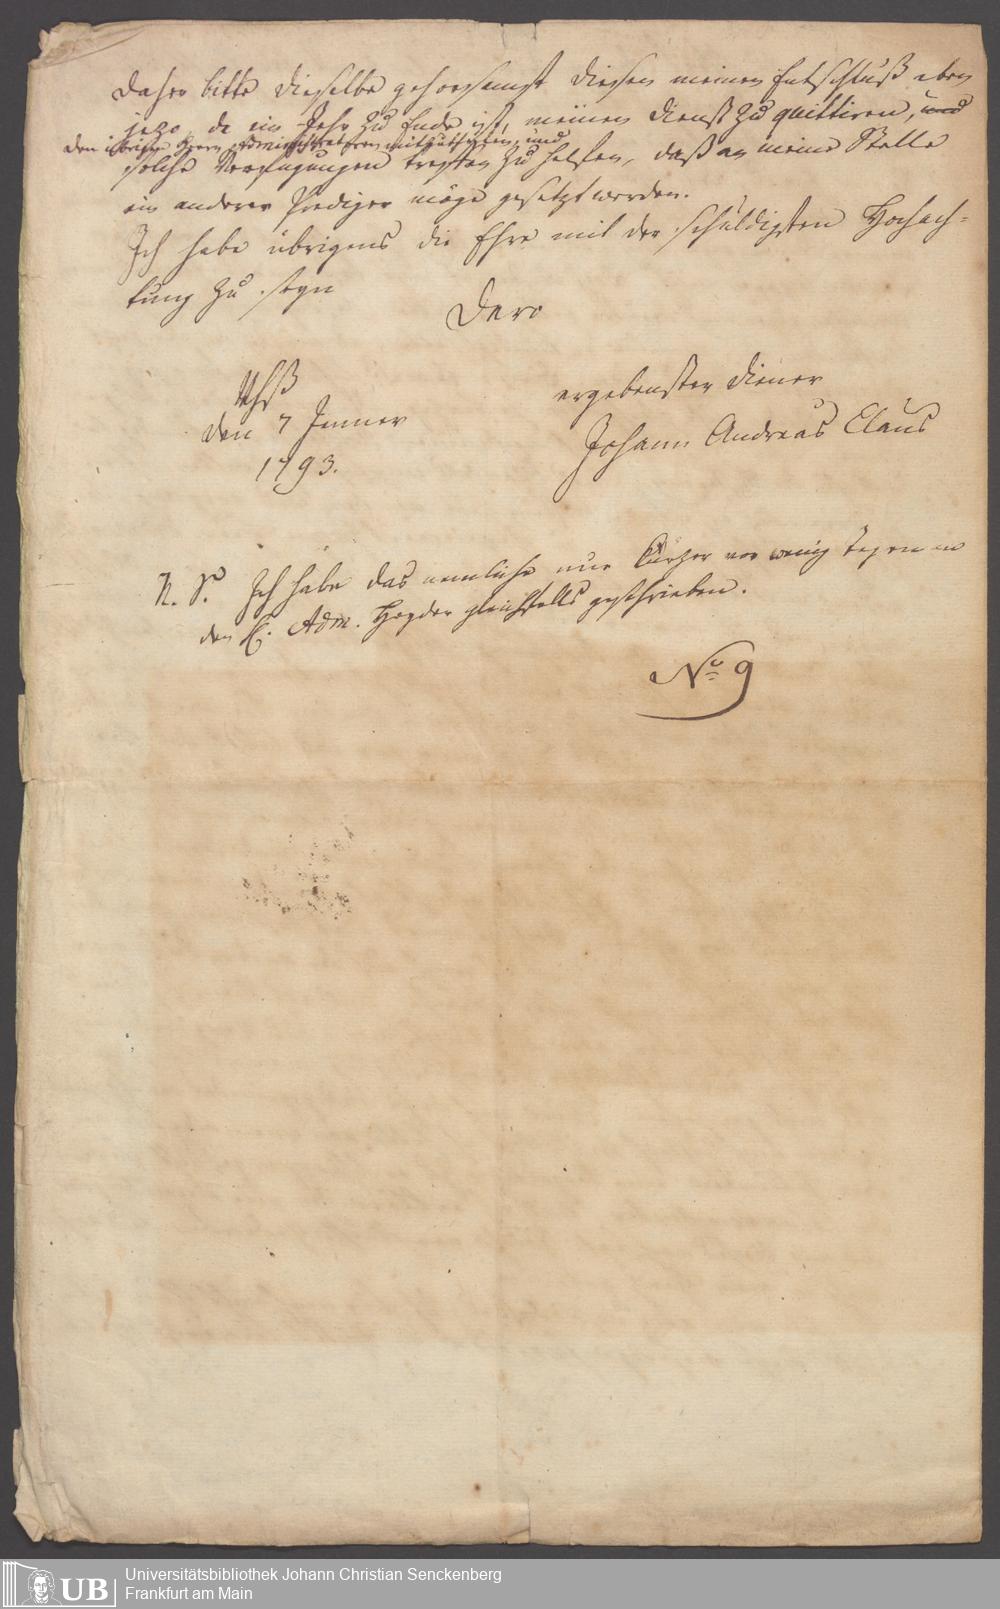 Daher bitte dieselbe gehorsamst diesen meinen Entschluß eben
jezo, da ein Jahr zu Ende ist, meinen Dienst zu quittiren, und
den übrigen Herrn Administratoren mitzutheilen, und
solche Verfügungen treffen zu helfen, daß an meine Stelle
ein anderer Prediger möge gesetzt werden.
Ich habe übrigens die Ehre mit der schuldigsten Hochach-
tung zu seyn
Dero
ergebenster Diener
den 7 Jenner
Johann Andreas Claus
1793.
N. S. Ich habe das nemliche nur kürzer vor wenig Tagen an
den H. Adm. gleichfalls geschrieben.
No 9
UB Universitätsbibliothek Johann Christian Senckenberg
Frankfurt am Main